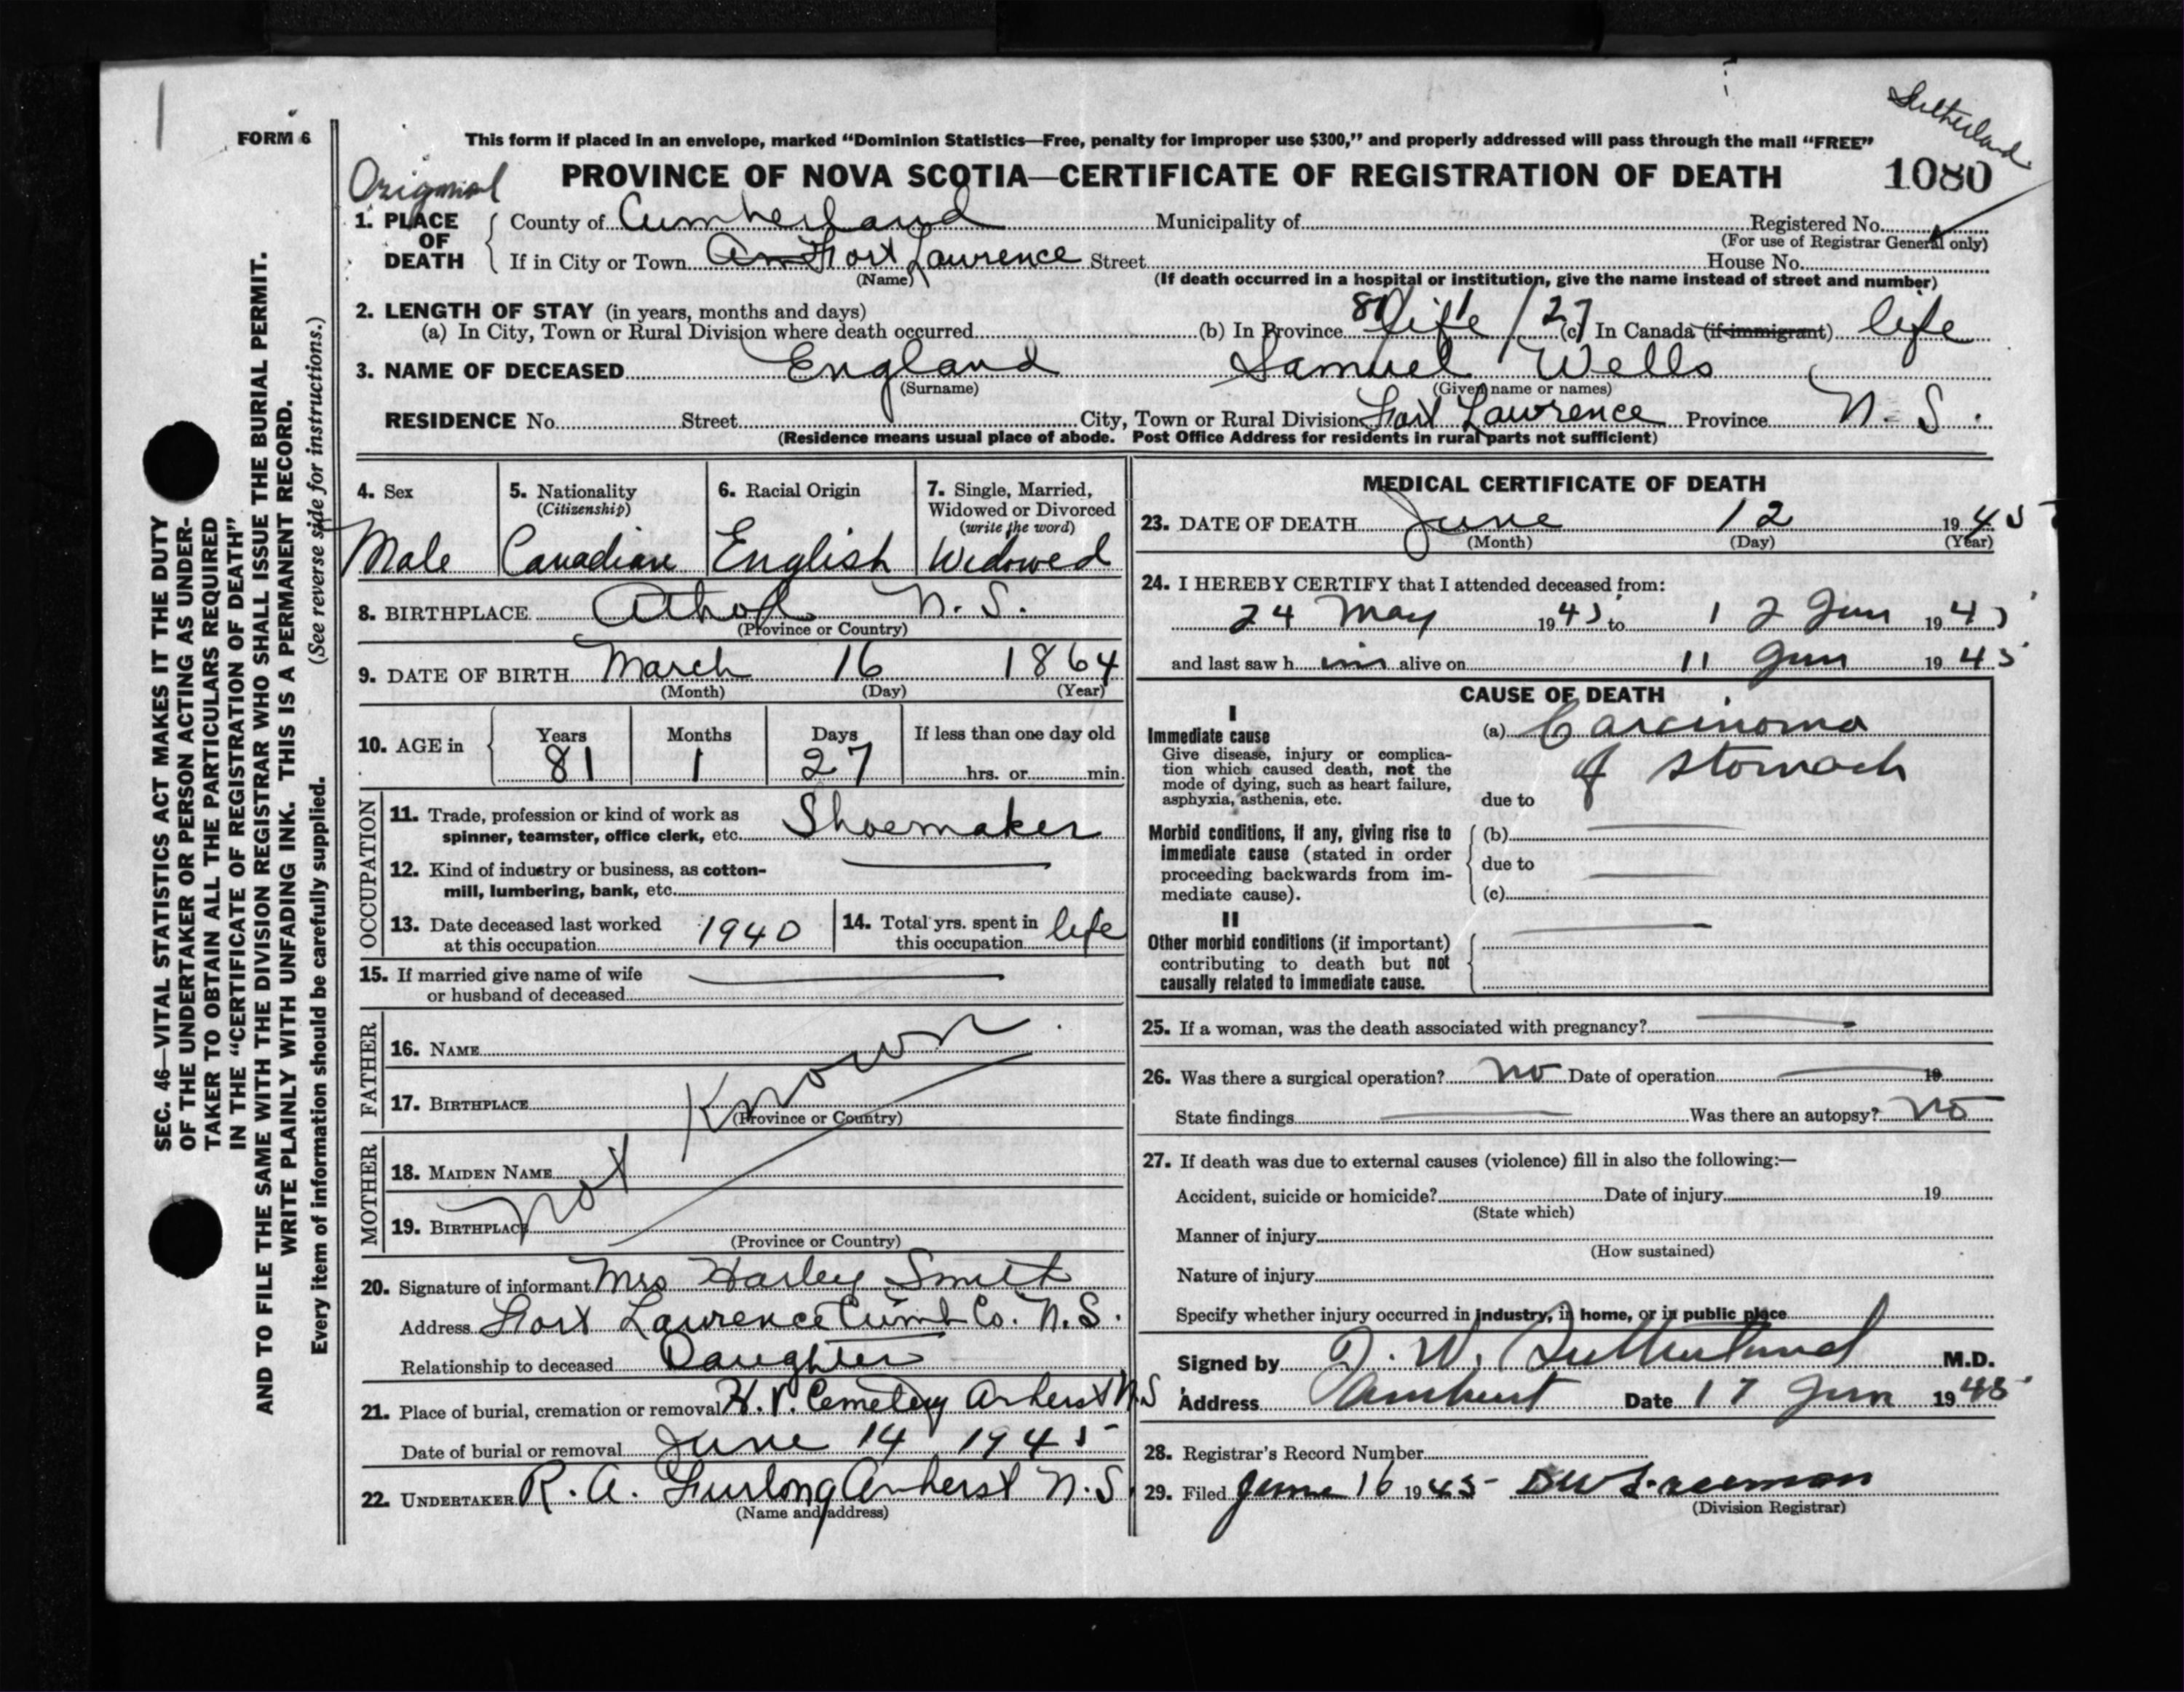 Sutherland
FORM 6
This form if placed in an envelope, marked “Dominion Statistics—Free, penalty for improper use $300,” and properly addressed will pass through the mail “FREE”
Original
PROVINCE OF NOVA SCOTIA—CERTIFICATE OF REGISTRATION OF DEATH 1080
1. PLACE OF DEATH
County of Cumberland Municipality of Registered No.
(For use of Registrar General only)
If in City or Town Am Fort Lawrence Street House No.
(Name) (If death occurred in a hospital or institution, give the name instead of street and number)
2. LENGTH OF STAY (in years, months and days) 81/1/27
(a) In City, Town or Rural Division where death occurred (b) In Province life (c) In Canada (if immigrant) life
3. NAME OF DECEASED England Samuel Wells
(Surname) (Given name or names)
RESIDENCE No. Street City, Town or Rural Division Fort Lawrence Province N. S.
(Residence means usual place of abode. Post Office Address for residents in rural parts not sufficient)
4. Sex
Male
5. Nationality
(Citizenship)
Canadian
6. Racial Origin
English
7. Single, Married,
Widowed or Divorced
(write the word)
Widowed
8. BIRTHPLACE Athol N. S.
(Province or Country)
9. DATE OF BIRTH March 16 1864
(Month) (Day) (Year)
10. AGE in
Years Months Days If less than one day old
81 1 27 hrs. or min.
OCCUPATION
11. Trade, profession or kind of work as
spinner, teamster, office clerk, etc. Shoemaker
12. Kind of industry or business, as cotton-
mill, lumbering, bank, etc.
13. Date deceased last worked
at this occupation 1940
14. Total yrs. spent in
this occupation life
15. If married give name of wife
or husband of deceased
FATHER
16. NAME
17. BIRTHPLACE
(Province or Country)
MOTHER
18. MAIDEN NAME
19. BIRTHPLACE
(Province or Country)
not Known
20. Signature of informant Mrs Harley Smith
Address Fort Lawrence Cumb Co. N.S.
Relationship to deceased Daughter
21. Place of burial, cremation or removal H. V. Cemetery Amherst N.S
Date of burial or removal June 14 1945
22. UNDERTAKER R. A. Furlong Amherst N.S.
(Name and address)
MEDICAL CERTIFICATE OF DEATH
23. DATE OF DEATH June 12 1945
(Month) (Day) (Year)
24. I HEREBY CERTIFY that I attended deceased from:
24 May 1945 to 12 Jun 1945
and last saw him alive on 11 Jun 1945
CAUSE OF DEATH
I
Immediate cause
Give disease, injury or complica-
tion which caused death, not the
mode of dying, such as heart failure,
asphyxia, asthenia, etc.
(a) Carcinoma
of stomach
due to
Morbid conditions, if any, giving rise to
immediate cause (stated in order
proceeding backwards from im-
mediate cause).
(b)
due to
(c)
II
Other morbid conditions (if important)
contributing to death but not
causally related to immediate cause.
25. If a woman, was the death associated with pregnancy?
26. Was there a surgical operation? no Date of operation 19
State findings Was there an autopsy? no
27. If death was due to external causes (violence) fill in also the following:—
Accident, suicide or homicide? Date of injury 19
(State which)
Manner of injury
(How sustained)
Nature of injury
Specify whether injury occurred in industry, in home, or in public place
Signed by D. W. Sutherland M.D.
Address Amherst Date 17 Jun 1945
28. Registrar's Record Number
29. Filed June 16 1945
(Division Registrar)
SEC. 46—VITAL STATISTICS ACT MAKES IT THE DUTY
OF THE UNDERTAKER OR PERSON ACTING AS UNDER-
TAKER TO OBTAIN ALL THE PARTICULARS REQUIRED
IN THE “CERTIFICATE OF REGISTRATION OF DEATH”
AND TO FILE THE SAME WITH THE DIVISION REGISTRAR WHO SHALL ISSUE THE BURIAL PERMIT.
WRITE PLAINLY WITH UNFADING INK. THIS IS A PERMANENT RECORD.
Every item of information should be carefully supplied. (See reverse side for instructions.)